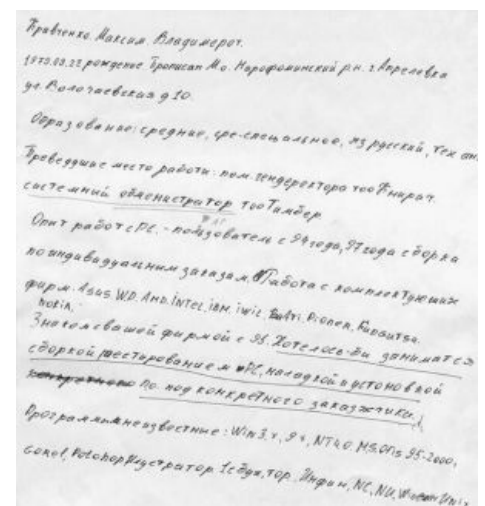 Кравченко. Максим. Владимерот.
1979.09.22 рождение Прописан М.о. Нарофоминский р.н. г. Апрелевка
ул. Волочаевская д 10.
Образование: средние, сре-специальное, яз русский, тех
Преведущие место работы: пом. гендеректора тоо
системный обменистратор тоо Тамбер
Опыт работ с PC. - пользователь с 94 года, 97 года сборка
по индивадуальным заказам. Работа с комплектующих
фирм: Asus, WD. AMD. INTEL. IBM. iwil. Pionen. Fupautsa.
Знаком с вашей фирмой с 96. Хотелось-бы занимат ся
сборкой тестирование м PC, наладкой и устоновкой
По. под конкретного заказжчика.
Программы мне известные: Win3.x, 9x, NT4.0. M.S. Ofis 95-2000,
NC, NU,